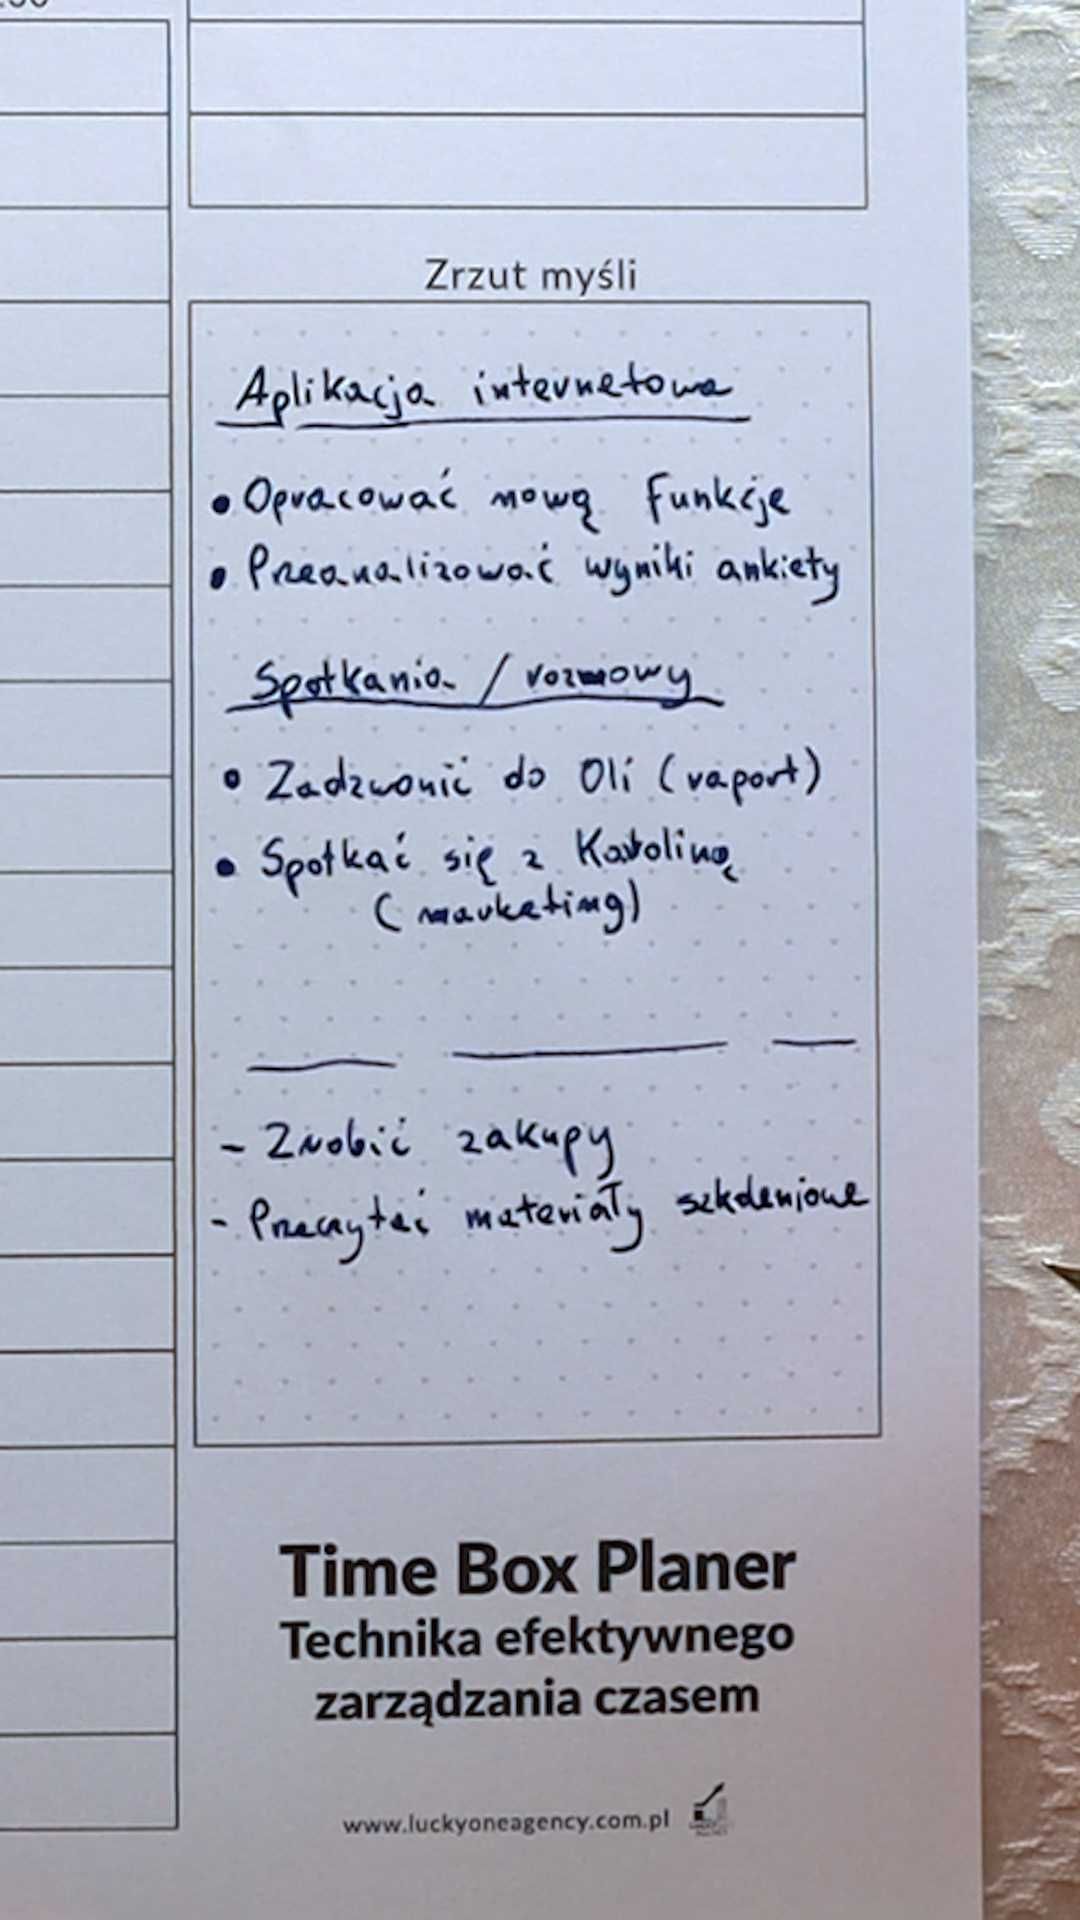 Zrzut myśli
Aplikacja internetowa
• Opracować nową funkcje
• Przeanalizować wyniki ankiety
Spotkania / rozmowy
• Zadzwonić do Oli (raport)
• Spotkać się z Karoliną
(marketing)
- Zrobić zakupy
- Przeczytać materiały szkoleniowe
Time Box Planer
Technika efektywnego
zarządzania czasem
www.luckyoneagency.com.pl